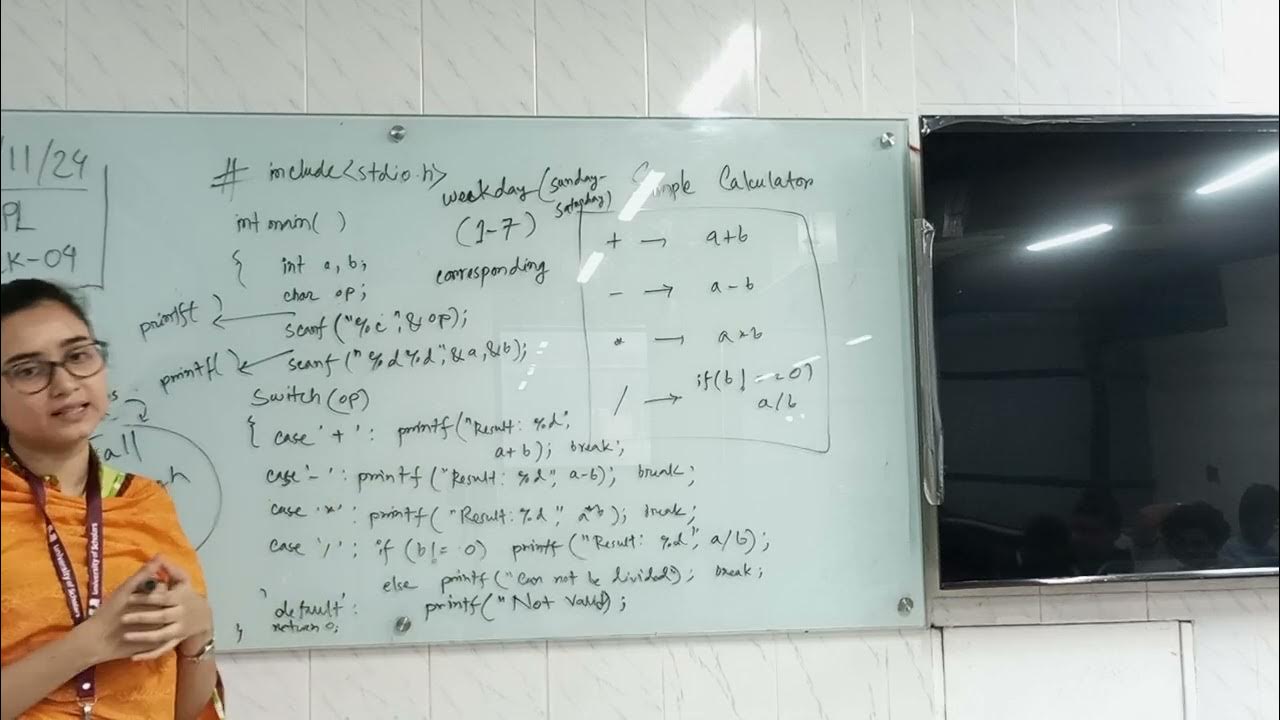 /11/24
PL
CK-04
# include<stdio.h>
int main( )
{ int a, b;
char op;
printf( )
scanf("%c",&op);
printf( )
scanf("%d%d",&a,&b);
Switch(op)
{ case '+': printf("Result: %d",
a+b); break;
case '-': printf("Result: %d", a-b); break;
case '*': printf("Result: %d", a*b); break;
case '/': if (b!= 0) printf("Result: %d", a/b);
else printf("Can not be divided); break;
'default': printf("Not Valid);
return 0;
}
weekday (sunday-
saturday)
(1-7)
corresponding
Simple Calculator
+ → a+b
- → a-b
* → a*b
/ → if(b! = 0)
a/b
all
University of Scholars